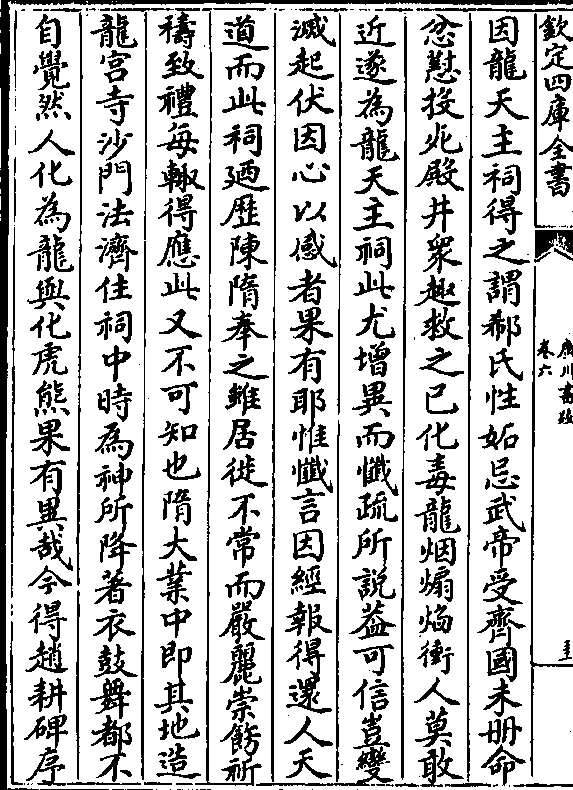 欽定四庫全書
廣川書跋
卷六
因龍天主祠得之謂郗氏性妬忌武帝受齊國未册命
忿懟投死殿井衆趣救之已化毒龍烟煽焰衝人莫敢
近遂為龍天主祠此尤增異而懴疏所説葢可信豈變
滅起伏因心以感者果有耶惟懴言因經報得還人天
道而此祠廼歴陳隋奉之雖居徙不常而嚴麗崇飾祈
禱致禮每輙得應此又不可知也隋大業中即其地造
龍宫寺沙門法濟住祠中時為神所降著衣鼓舞都不
自覺然人化為龍與化虎熊果有異哉今得趙耕碑序